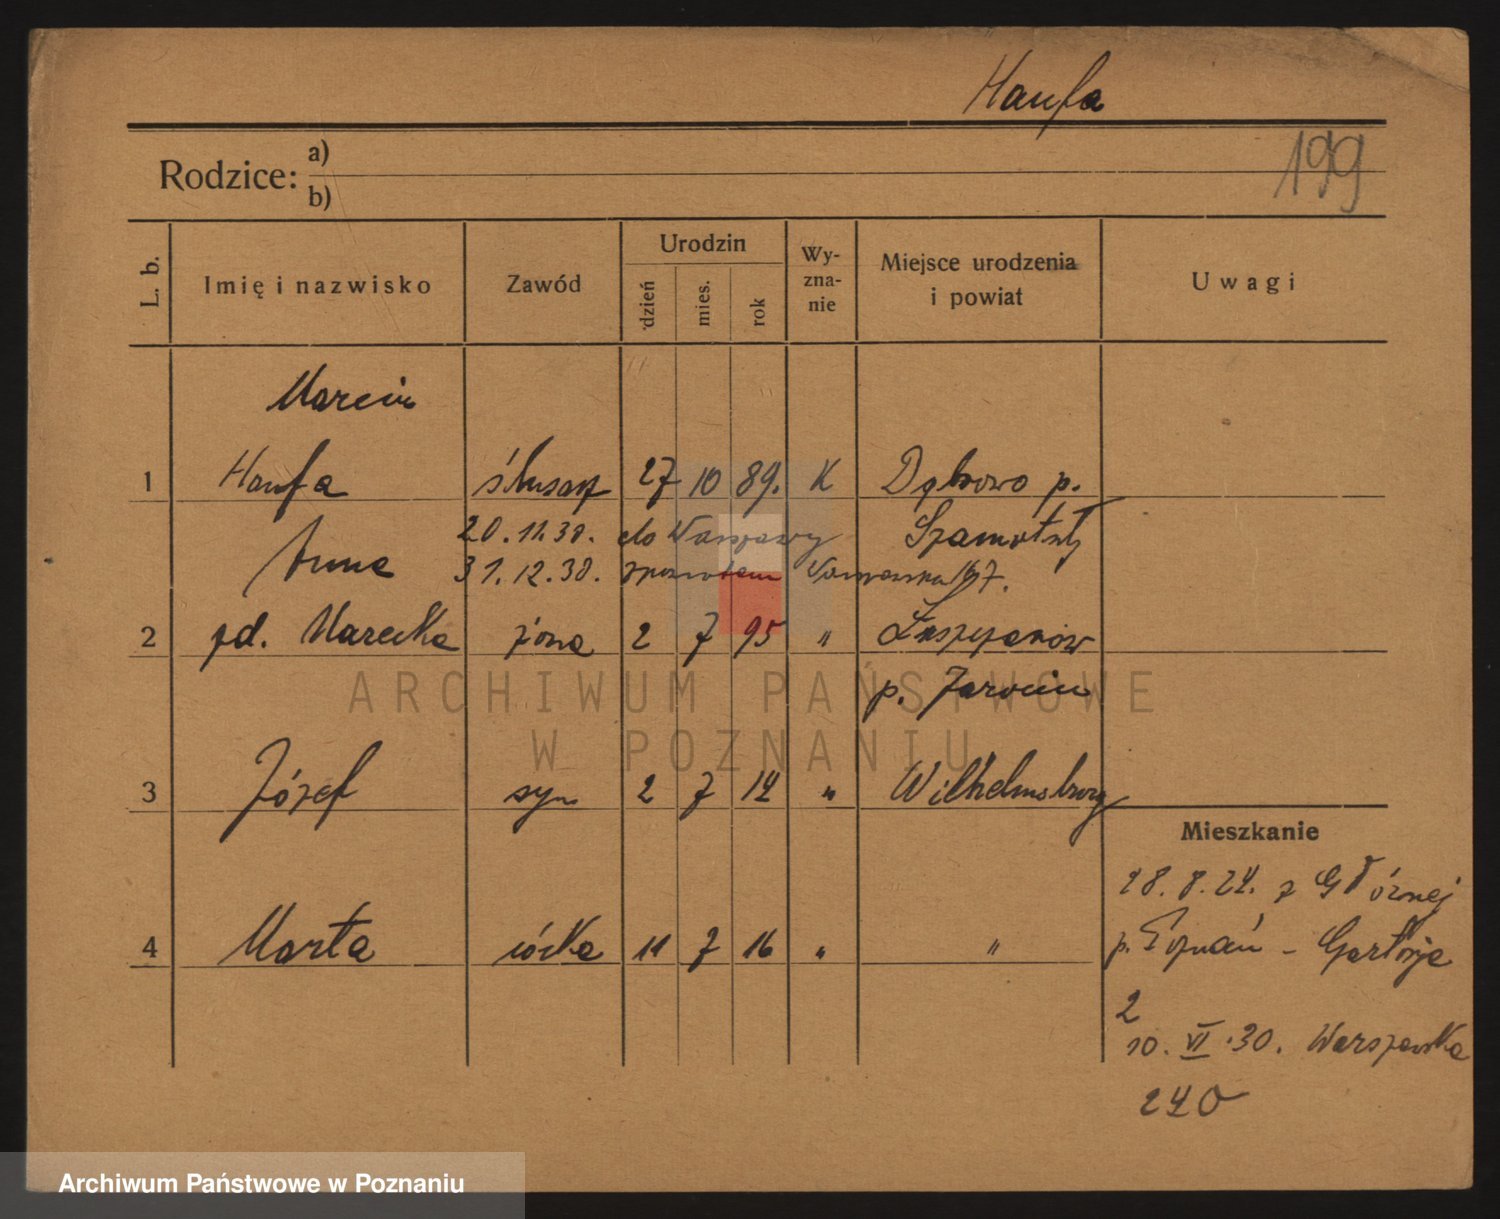 Haufa
199
Rodzice: a)
b)
L. b.
Imię i nazwisko
Zawód
Urodzin
dzień
mies.
rok
Wy-
zna-
nie
Miejsce urodzenia
i powiat
Uwagi
Marcin
1 Haufa ślusarz 27 10 89. K Dąbrowo p.
20.11.30. do Warszawy Szamotuły
Anna 31.12.30. zpowrotem Warszawska 167.
2 zd. Marecka żona 2 7 95 "
p. Jarocin
3 Józef syn 2 7 14 " Wilhelmsburg
Mieszkanie
28.8.24. z Głównej
4 Marta córka 11 7 16 " " p. Poznań -
2
10.VI.30. Warszawska
240
ARCHIWUM PAŃSTWOWE
W POZNANIU
Archiwum Państwowe w Poznaniu